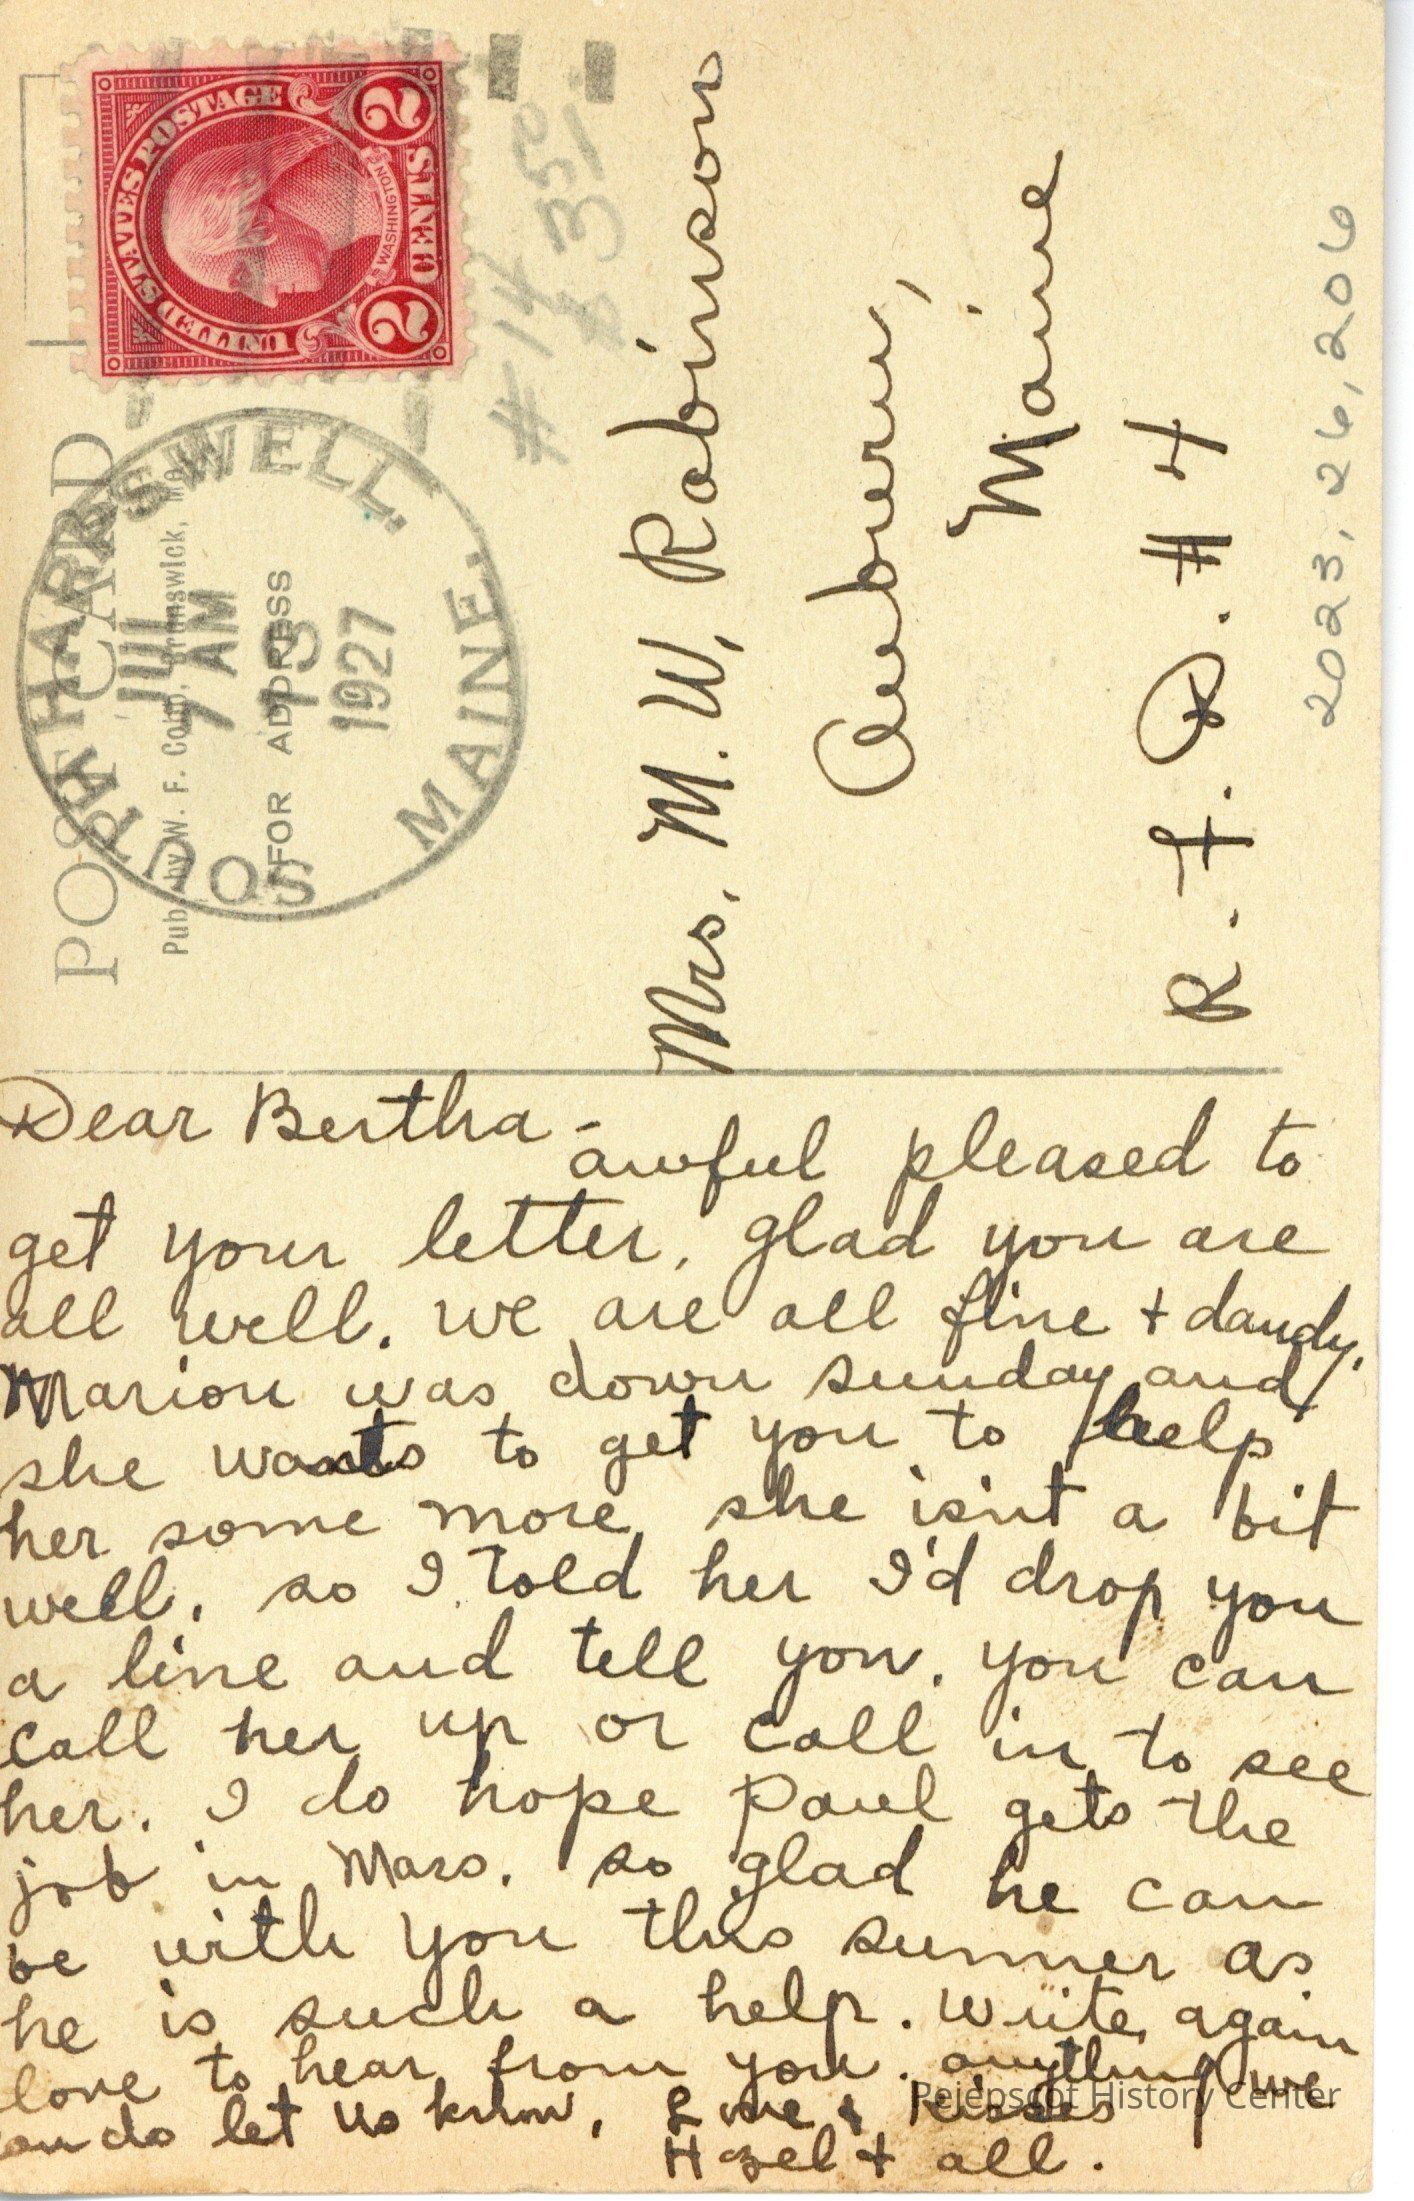 UNITED STATES POSTAGE
WASHINGTON
2 CENTS 2
SOUTH HARPSWELL.
MAINE.
JUL
13
7 AM
1927
POST CARD
Pub. by W. F. Cobb, Brunswick, Me.
FOR ADDRESS
Mrs. M. W. Robinson
Auburn,
Maine
R. F. D. #4
2023, 26, 206
Dear Bertha -
awful pleased to
get your letter, glad you are
all well. we are all fine + dandy.
Marion was down sunday and
she wants to get you to help
her some more, she isn't a bit
well, so I told her I'd drop you
a line and tell you. you can
call her up or call in to see
her. I do hope Paul gets the
job in Mass. so glad he can
be with you this summer as
he is such a help. write again
love to hear from you. anything we
can do let us know, Love & Kisses
Hazel + all.
Pejepscot History Center